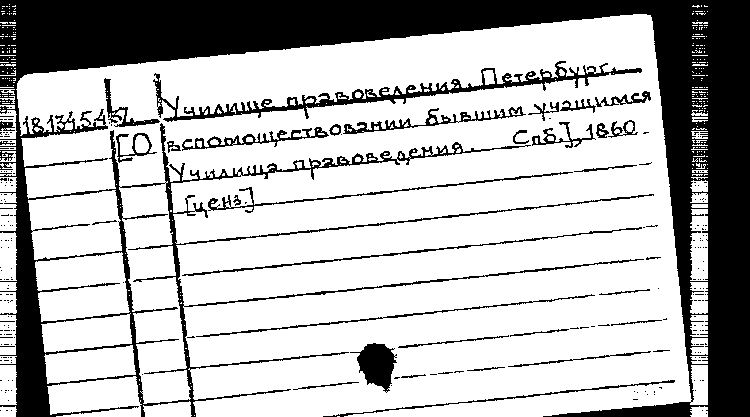 Училище правоведения. Петербург.
18.134.5.457.
[О вспомоществовании бывшим учащимся
Училища правоведения. Спб.], 1860
[ценз.]